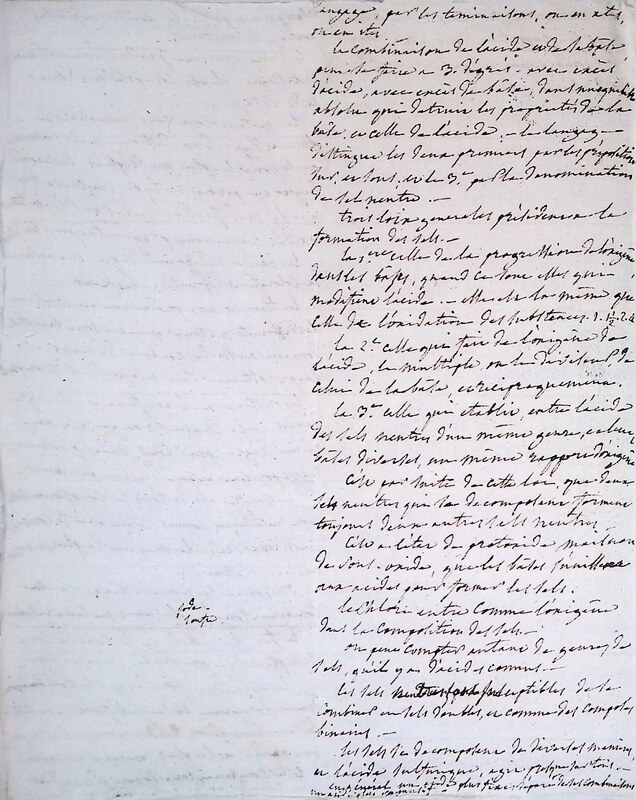 langage, par les terminaisons, ou en ates,
ou en ites
la combinaison de l'acide et de la base
peut se faire a 3. degrés. avec excès
d'acide, avec excès de base, dans une
absolue qui detruit les proprietés de la
base, et celle de l'acide, — le langage
distingue les deux premiers par les preposition
sur, et sous, et le 3.e par la denomination
de sel neutre. —
trois loix generales président a la
formation des sels. —
la 1ere celle de la progression de l'oxigène
dans les bases, quand ce sont elles qui
modifient l'acide. — elle est la même que
celle de l'oxidation des substances. 1. 1½. 2. 4
la 2.e celle qui fait de l'oxigène de
l'acide, le multiple ou le diviseur de
celui de la base et reciproquement.
la 3.e celle qui etablit, entre l'acide
des sels neutres d'un même genre, et leurs
bases diverses, un même rapport d'oxigène
C'est par suite de cette loi, que deux
sels neutres qui se decomposent forment
toujours deux autres sels neutres
C'est a l'etat de protoxide
de sous-oxide, que les bases
aux acides pour former les sels.
le Chlore entre comme l'oxigène
dans la composition des sels. —
on peut compter autant de genres de
sels, qu'il y a d'acides connus. —
les sels susceptibles de se
combiner en sels doubles, et comme des composés
binaires. —
les sels se decomposent de diverses manieres
et l'acide sulfurique, agit presque sur tous. —
en general un acide plus fixe, separe de ses combinaisons